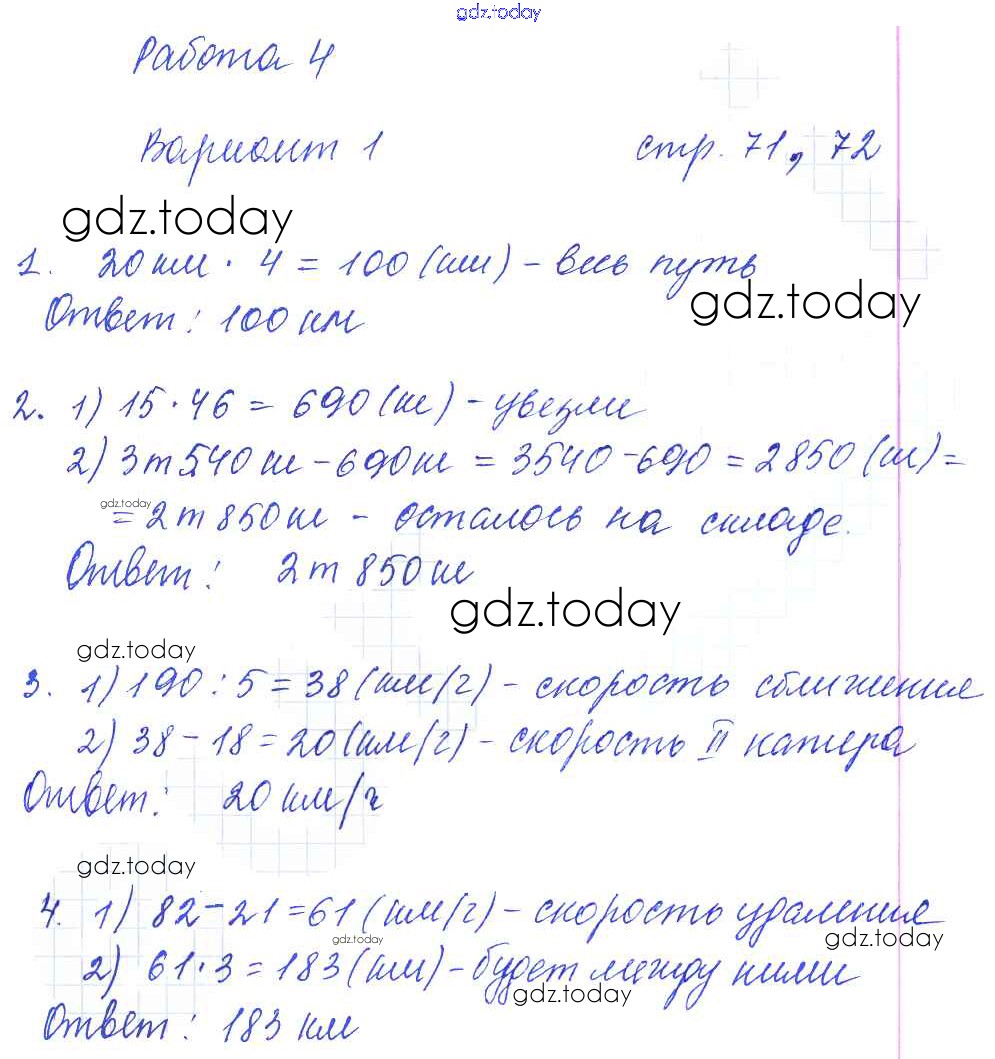 gdz.today
Работа 4
Вариант 1 стр. 71, 72
gdz.today
1. 20 км · 4 = 100 (км) - весь путь
gdz.today
Ответ: 100 км
2. 1) 15 · 46 = 690 (кг) - увезли
2) 3 т 540 кг - 690 кг = 3540 - 690 = 2850 (кг) =
gdz.today
= 2 т 850 кг - осталось на складе.
Ответ: 2 т 850 кг
gdz.today
gdz.today
3. 1) 190 : 5 = 38 (км/ч) - скорость сближения
2) 38 - 18 = 20 (км/ч) - скорость II катера
Ответ: 20 км/ч
gdz.today
4. 1) 82 - 21 = 61 (км/ч) - скорость удаления
gdz.today
gdz.today
2) 61 · 3 = 183 (км) - будет между ними
gdz.today
Ответ: 183 км